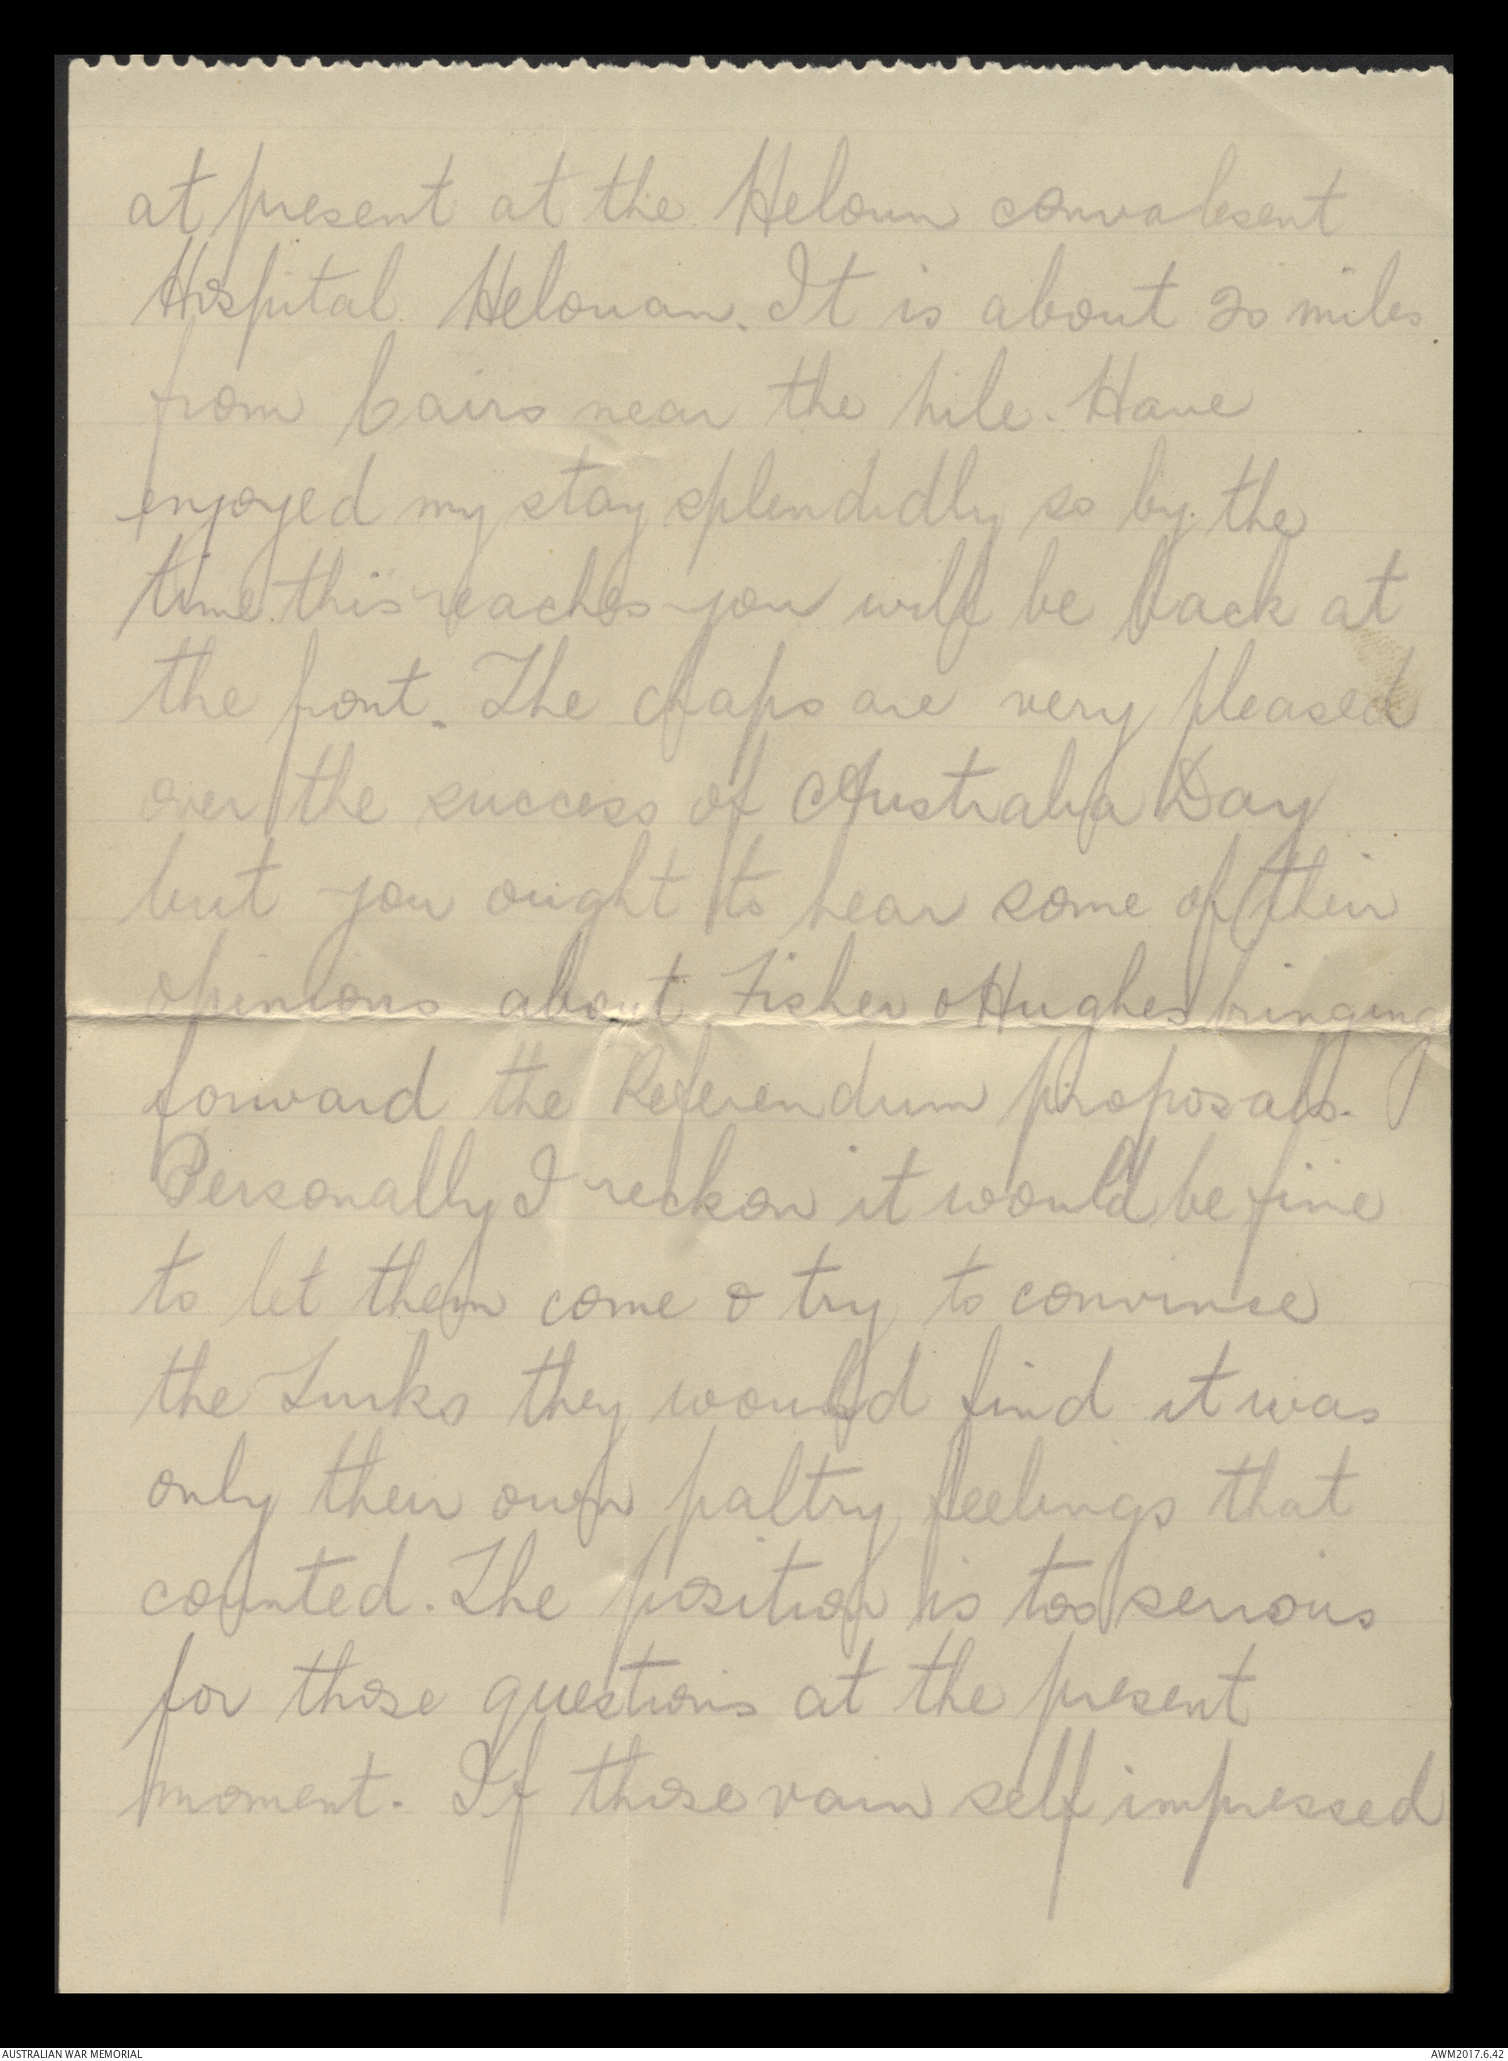 at present at the Heloun convalesent
Hospital. Helouan. It is about 20 miles
from Cairo near the nile. Have
enjoyed my stay splendidly so by the
time this reaches you will be back at
the front. The chaps are very pleased
over the success of Australia Day
but you ought to hear some of their
opinions about Fisher & Hughes bringing
forward the Referendum proposals.
Personally I reckon it would be fine
to let them come & try to convince
the Turks they would find it was
only their own paltry feelings that
counted. The position is too serious
for those questions at the present
moment. If those vain self impressed
AUSTRALIAN WAR MEMORIAL
AWM2017.6.42